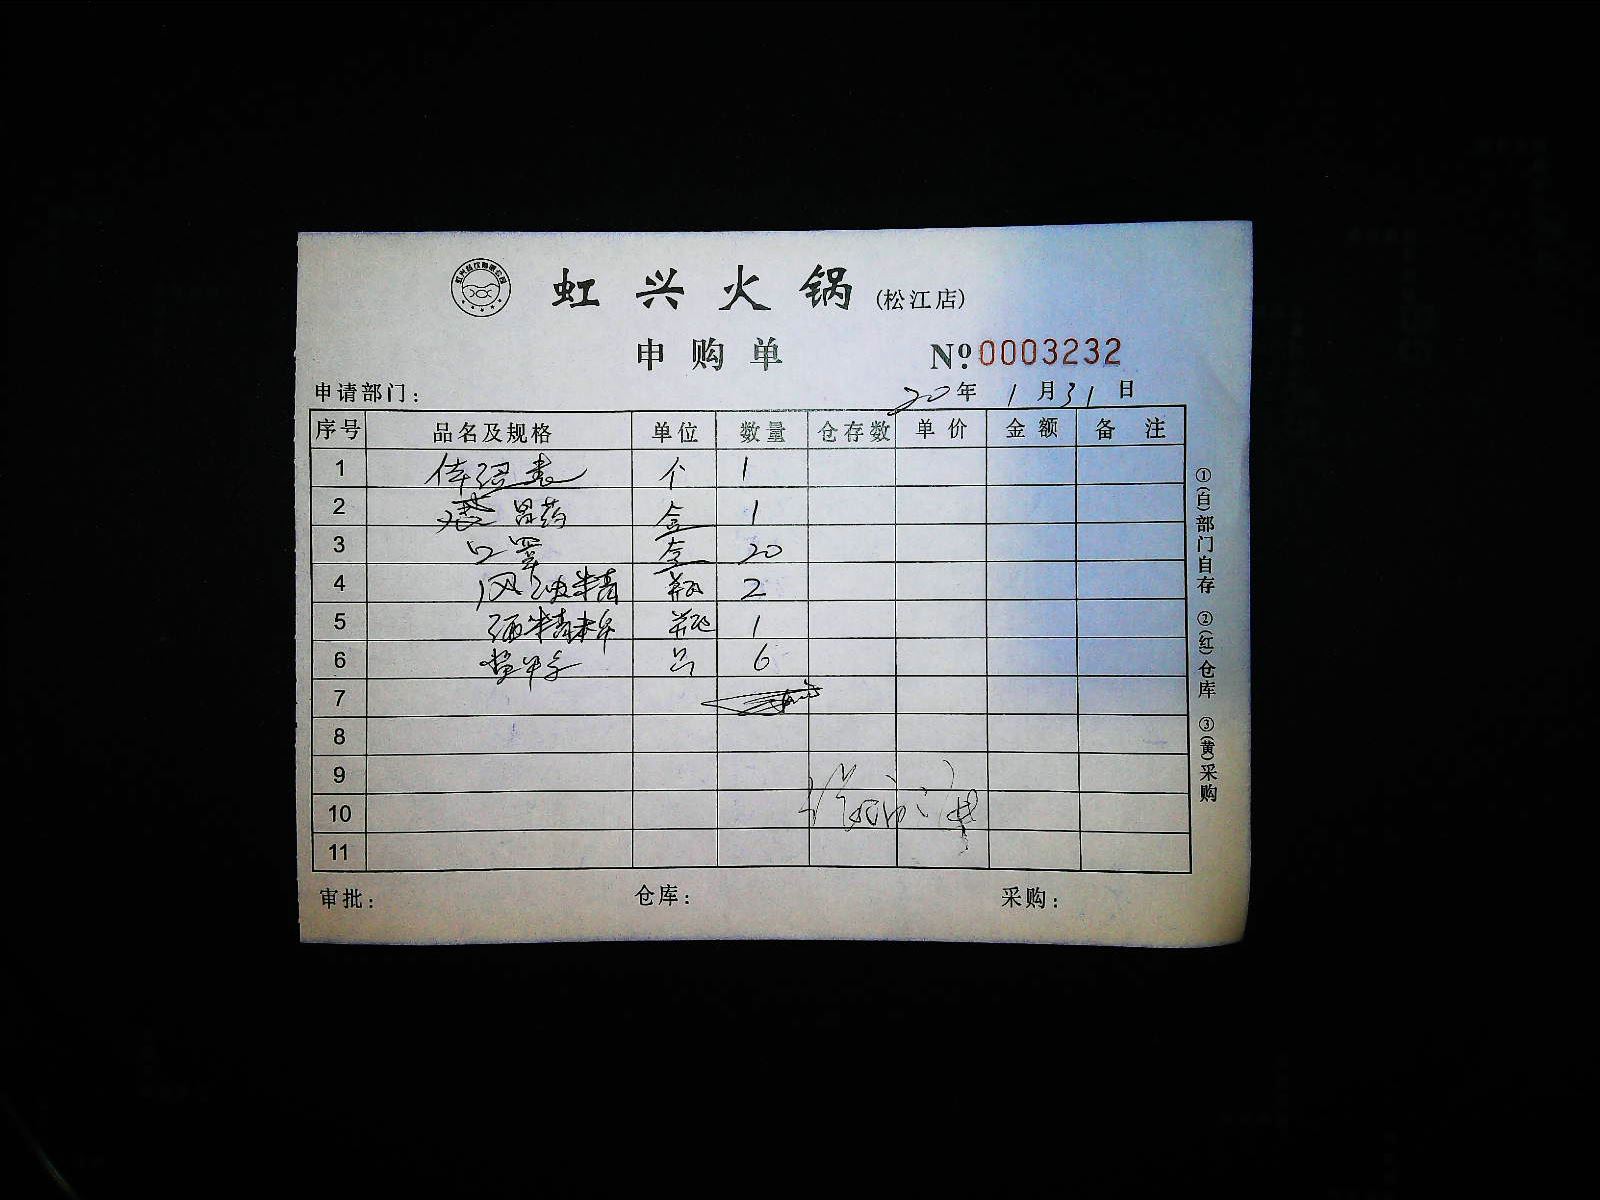 虹兴火锅 (松江店)
申购单 Nº 0003232
申请部门: 20年 1月31日
序号 品名及规格 单位 数量 仓存数 单价 金额 备注
1 体温表 个 1
2 胃药 盒 1
3 口罩 盒 20
4 风油精 瓶 2
5 酒精棉 瓶 1
6 6
7
8
9
10
11
审批: 仓库: 采购:
①(白)部门自存 ②(红)仓库 ③(黄)采购